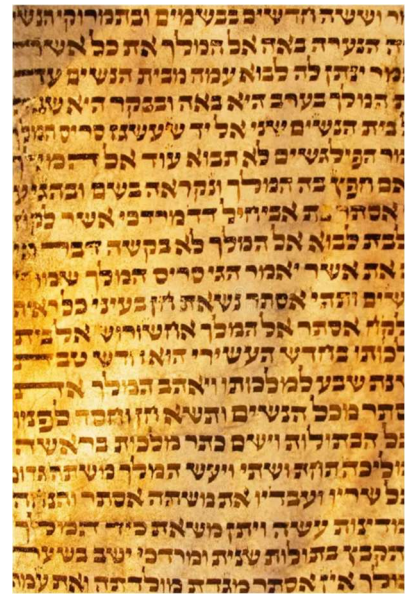 וששה חדשים בבשמים ובתמרוקי
הנערה באה אל המלך את כל
ינתן לה לבוא עמה מבית הנשים
המלך בערב היא באה ובבקר היא
בית הנשים שני אל יד שעשגז סריס
הפילגשים לא תבוא עוד אל
אם חפץ בה המלך ונקראה בשם
אסתר בת אביחיל דד מרדכי אשר
לבת לבוא אל המלך לא בקשה דבר
את אשר יאמר הגי סריס המלך
ותהי אסתר נשאת חן בעיני כל
אסתר אל המלך אחשורוש אל בית
בחדש העשירי הוא חדש
שבע למלכותו ויאהב המלך
מכל הנשים ותשא חן וחסד לפניו
הבתולות וישם כתר מלכות בראשה
תחת ושתי ויעש המלך משתה
שריו ועבדיו את משתה אסתר
עשה ויתן משאת כיד המלך
בתולות שנית ומרדכי ישב בשער
אין אסתר מגדת מולדתה ואת עמה